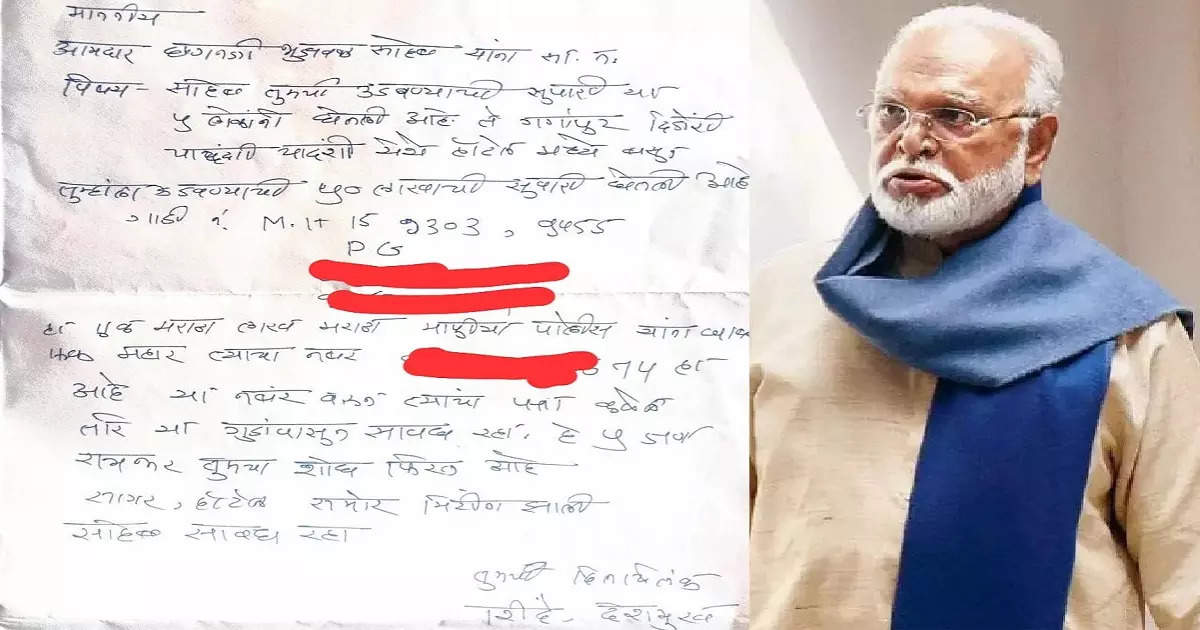 माननीय
आमदार छगनजी भुजबळ साहेब यांना सा. न.
विषय - साहेब तुमची उडवण्याची सुपारी या
५ लोकांनी घेतली आहे ते गंगापूर दिंडोरी
चांदशी येथे हॉटेल मध्ये बसून
तुम्हांला उडवण्याची ५० लाखाची सुपारी घेतली आहे
गाडी नं. M.H 15 9303, 9455
PG
हा एक मराठा लाख मराठा पोलीस यांना
त्याचा नंबर 74 हा
आहे या नंबर वरून त्यांचा पत्ता
तरि या गुंडांपासून सावध रहा. हे ५ जण
रात्रभर तुमचा शोध फिरत आहे
सागर, हॉटेल समोर मिटींग झाली
साहेब सावध रहा
तुमची हितचिंतक
शिंदे. देशमुख